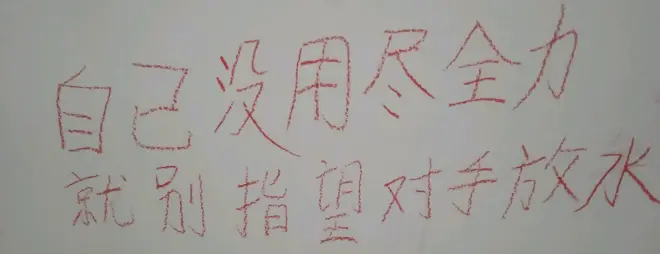 自己没用尽全力
就别指望对手放水